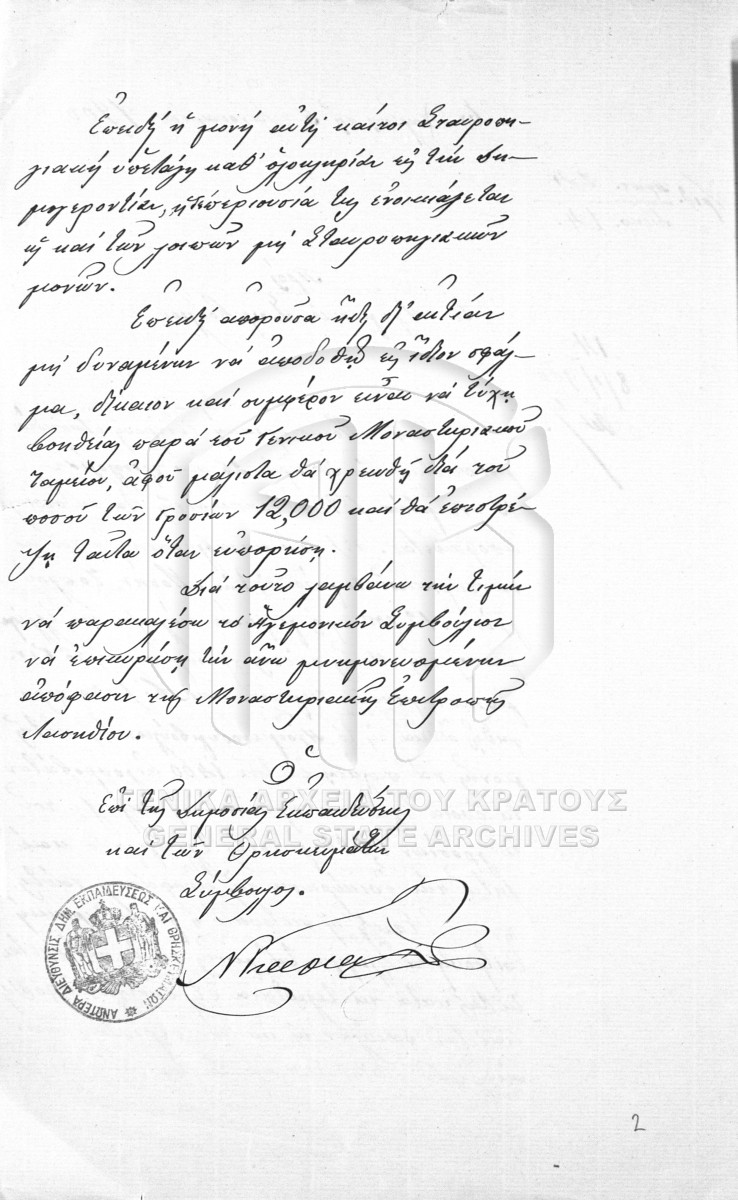 Ἐπειδή ἡ μονή αὐτή καίτοι Σταυροπη-
γιακή ὑπετάγη καθ' ὁλοκληρίαν εἰς τήν Δη-
μογεροντίαν, ἡ δέ περιουσία της ἐνοικιάζεται
ὡς καί τῶν λοιπῶν μή Σταυροπηγιακῶν
μονῶν.
Ἐπειδή ἀποροῦσα ἤδη δι' αἰτίαν
μή δυναμένην νά ἀποδοθῇ εἰς ἴδιον σφάλ-
μα, δίκαιον καί συμφέρον εἶναι νά τύχῃ
βοηθείας παρά τοῦ Γενικοῦ Μοναστηριακοῦ
Ταμείου, ἀφοῦ μάλιστα θά χρεωθῇ διά τοῦ
ποσοῦ τῶν Γροσίων 12,000 καί θά ἐπιστρέ-
ψῃ ταῦτα ὅταν εὐπορήσῃ.
Διά τοῦτο λαμβάνω τήν τιμήν
νά παρακαλέσω τό Ἡγεμονικόν Συμβούλιον
νά ἐπικυρώσῃ τήν ἄνω μνημονευομένην
ἀπόφασιν τῆς Μοναστηριακῆς Ἐπιτροπῆς
Λασηθίου.
Ὁ
Ἐπί τῆς Δημοσίας Ἐκπαιδεύσεως
καί τῶν Θρησκευμάτων
Σύμβουλος.
ΑΝΩΤΕΡΑ ΔΙΕΥΘΥΝΣΙΣ ΔΗΜ. ΕΚΠΑΙΔΕΥΣΕΩΣ ΚΑΙ ΘΡΗΣΚΕΥΜΑΤΩΝ
ΓΕΝΙΚΑ ΑΡΧΕΙΑ ΤΟΥ ΚΡΑΤΟΥΣ
GENERAL STATE ARCHIVES
2